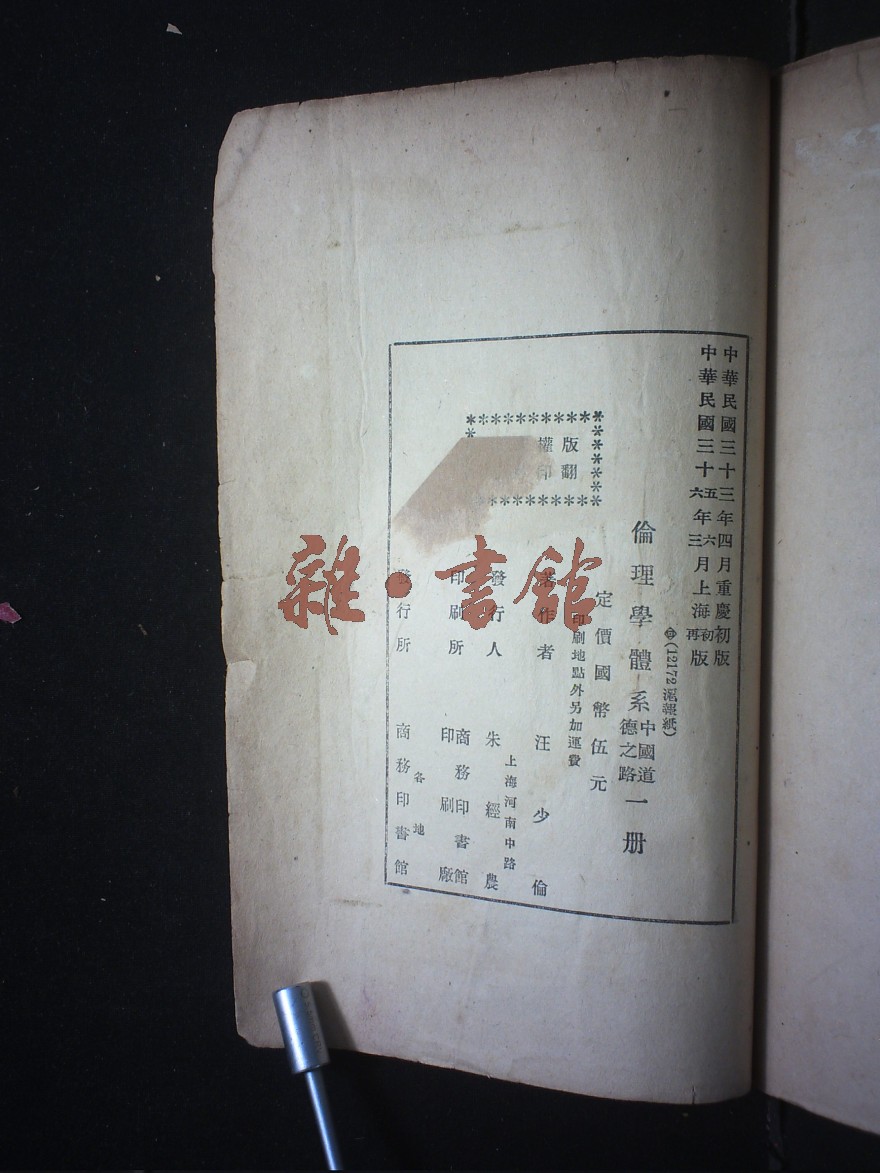 中華民國三十三年四月重慶初版
中華民國三十五六年六三月上海初再版
(12172滬報紙)
倫理學體系中國道德之路一册
定價國幣伍元
印刷地點外另加運費
版權
翻印
著作者 汪少倫
發行人 朱經農
上海河南中路
印刷所 商務印書館印刷廠
發行所 商務印書館
各地
雜·書館